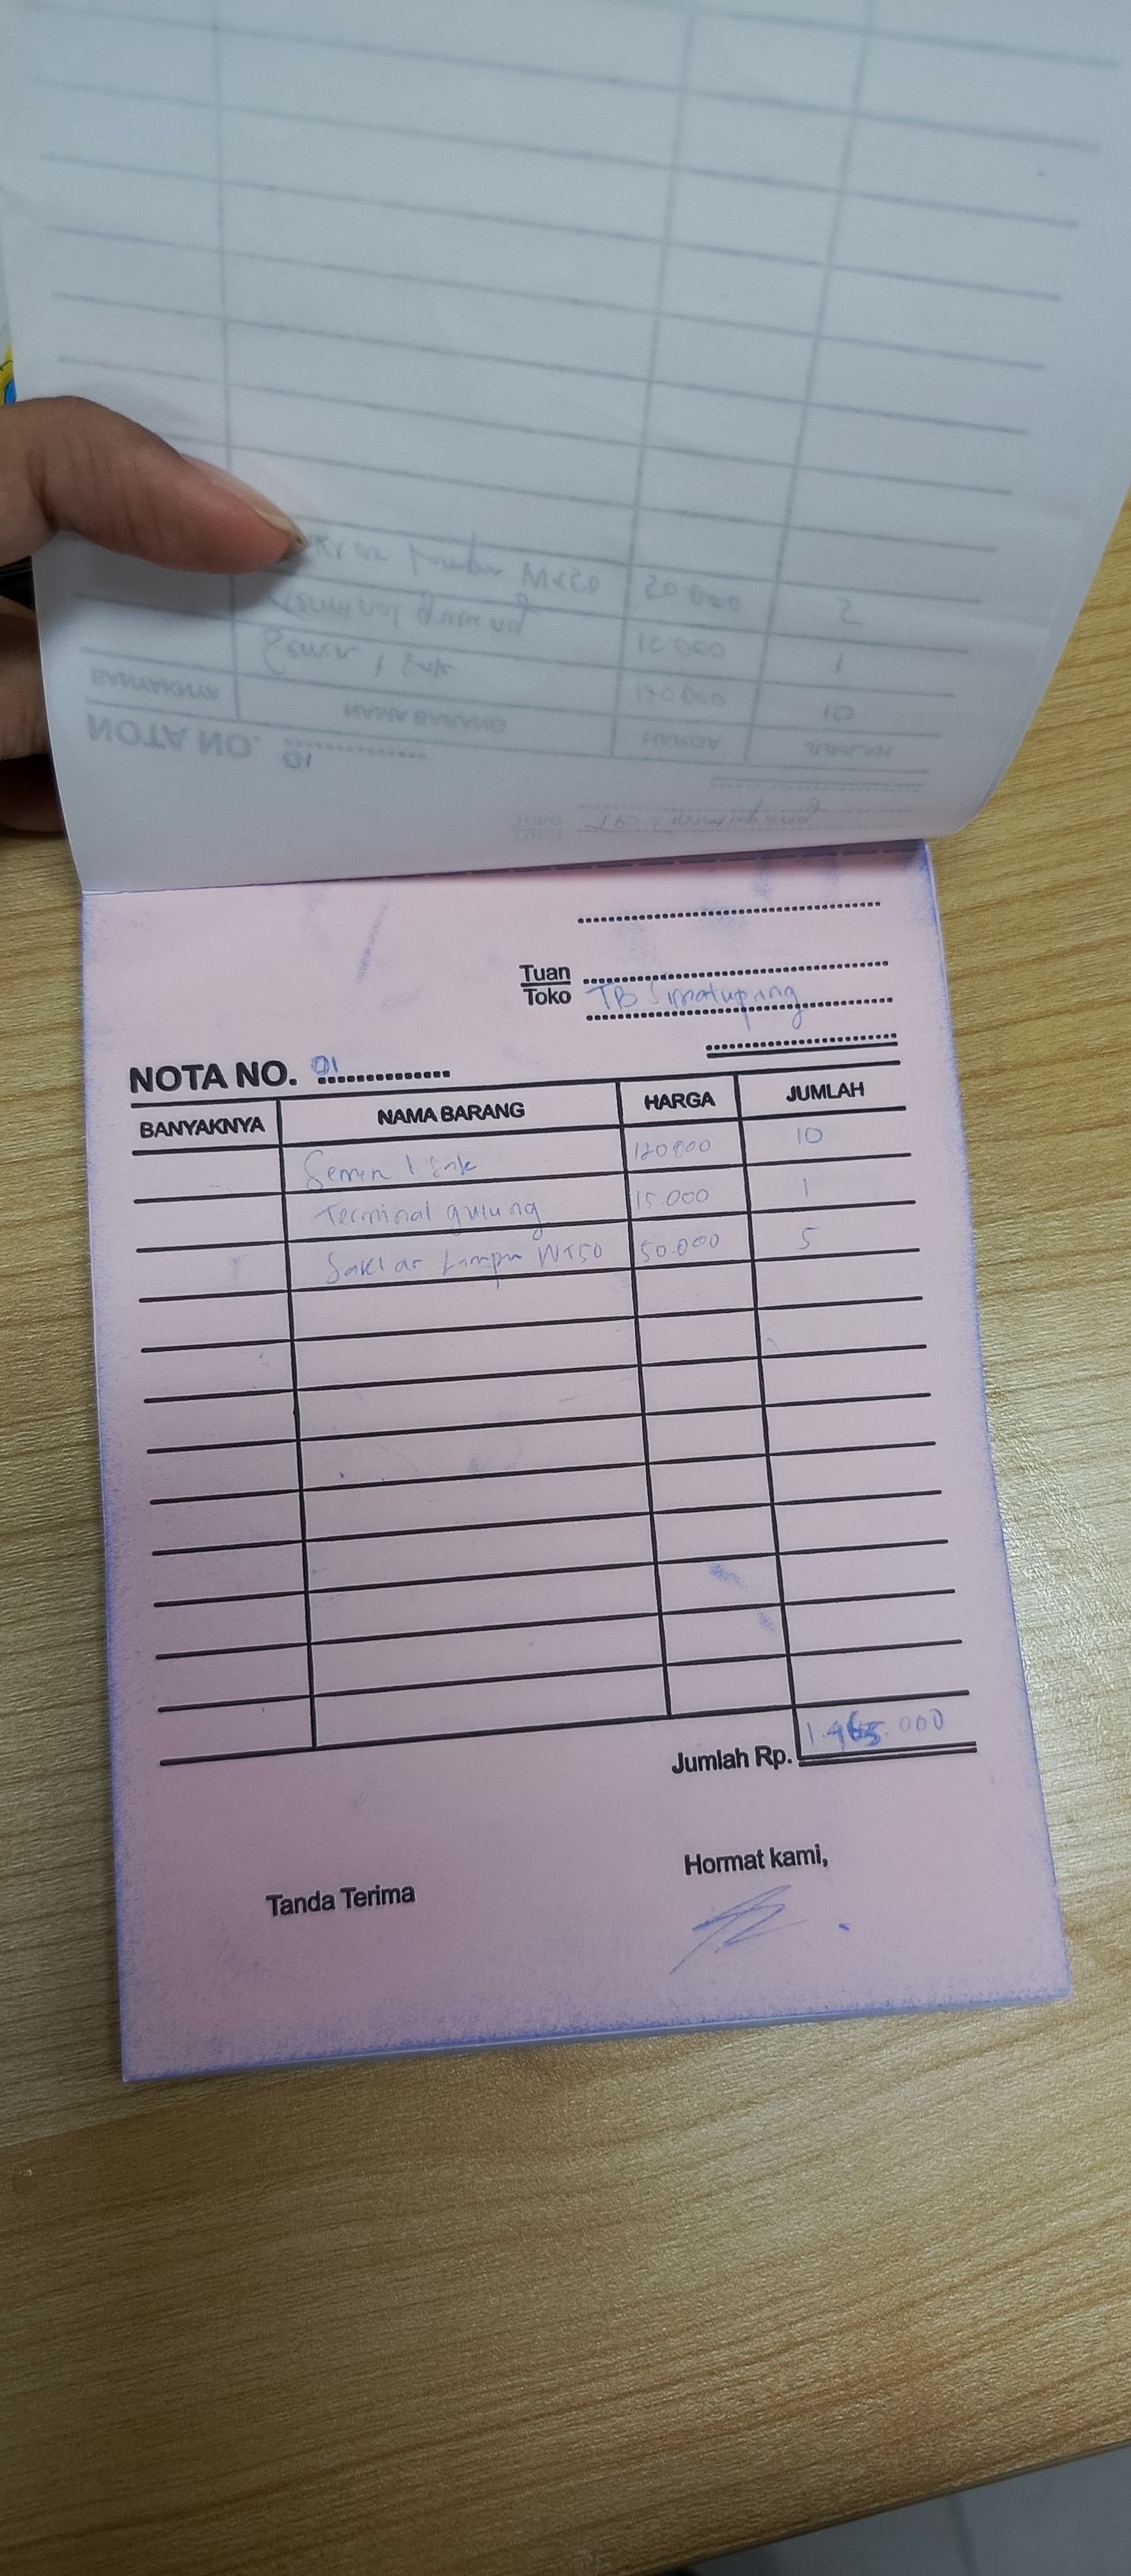 Tuan
Toko TB Simatupang
NOTA NO. 01
BANYAKNYA NAMA BARANG HARGA JUMLAH
Semen 1 Sak 120000 10
Terminal gulung 15.000 1
Saklar Lampu 50.000 5
Jumlah Rp. 1.465.000
Tanda Terima Hormat kami,